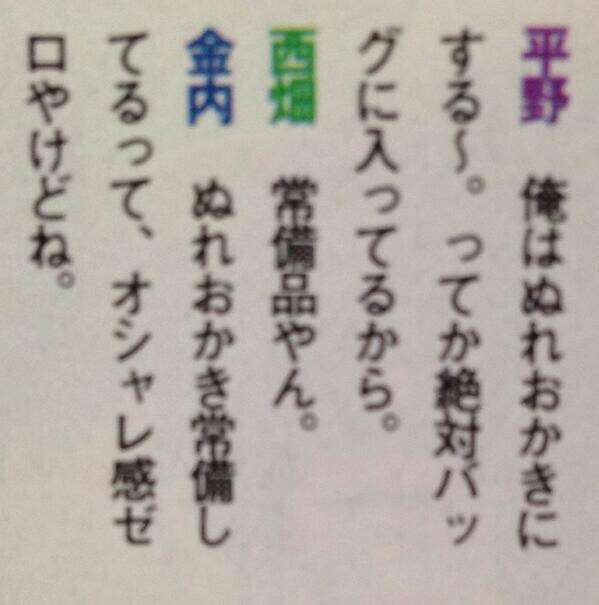 平野 俺はぬれおかきに
する～。ってか絶対バッ
グに入ってるから。
西畑 常備品やん。
金内 ぬれおかき常備し
てるって、オシャレ感ゼ
ロやけどね。